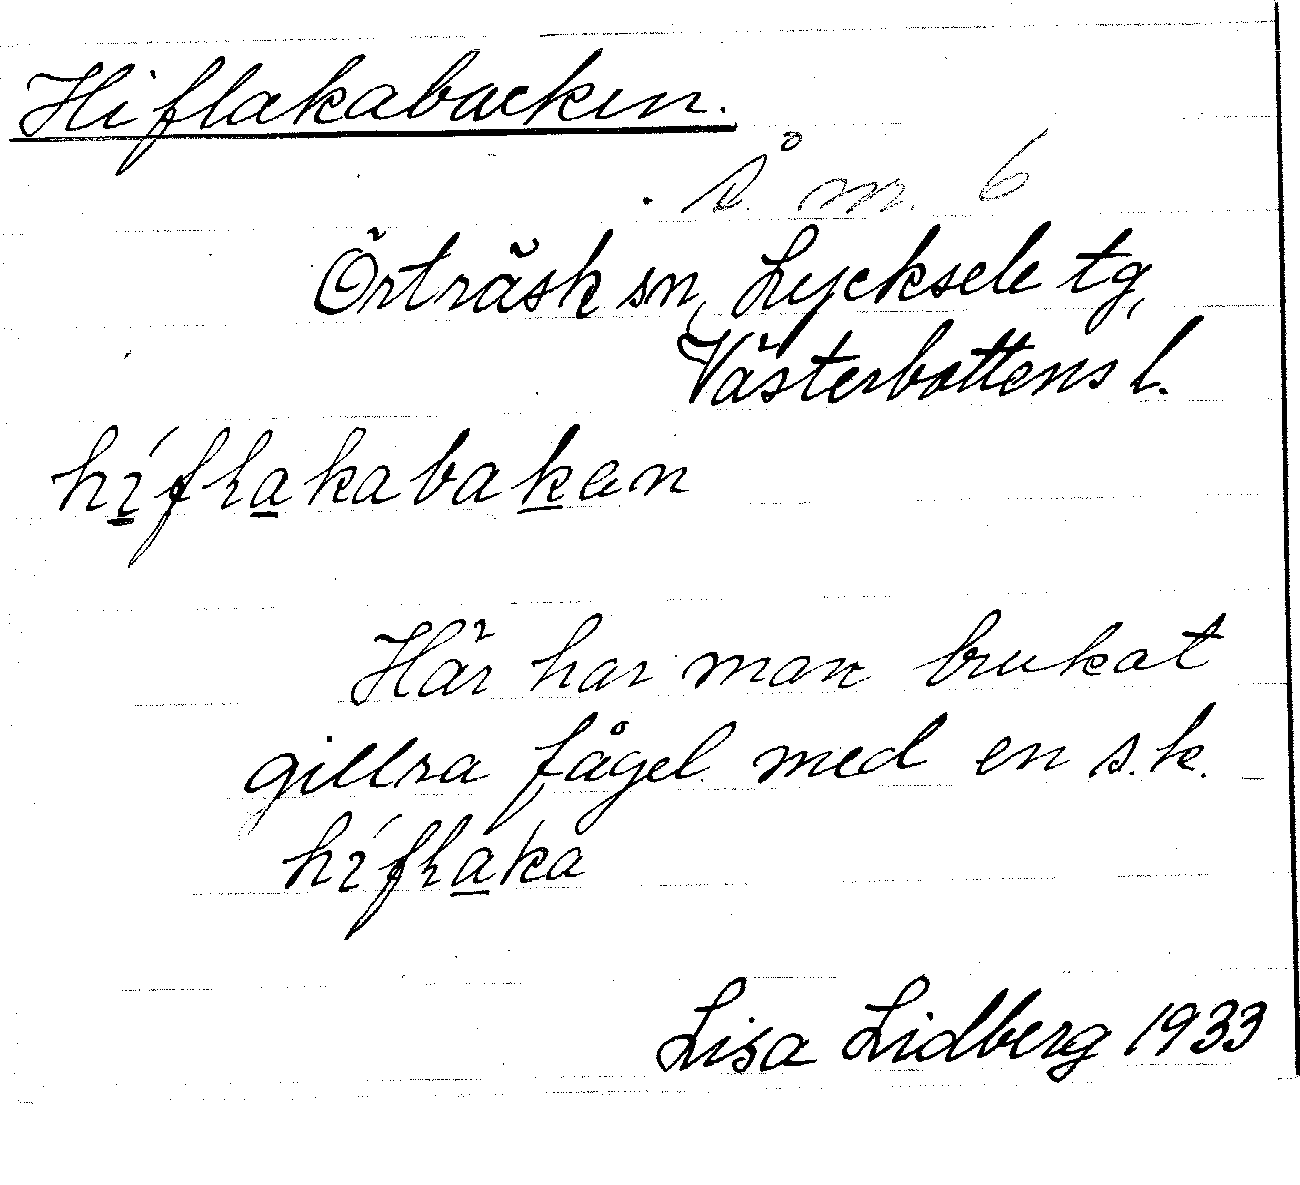 Hiflakabacken.
Å nr. 6
Örträsk sn, Lycksele tg,
Västerbottens l.
híflakabaken
Här har man brukat
gillra fågel med en s.k.
híflaka
Lisa Lidberg 1933